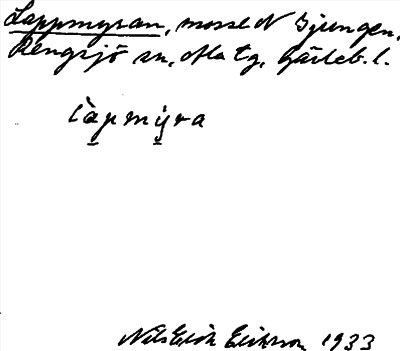 Lappmyran, mosse N Bjungen,
Rengsjö sn, Ala tg, Gävleb. l.
làpmy̠ra
Nils Erik Eriksson 1933